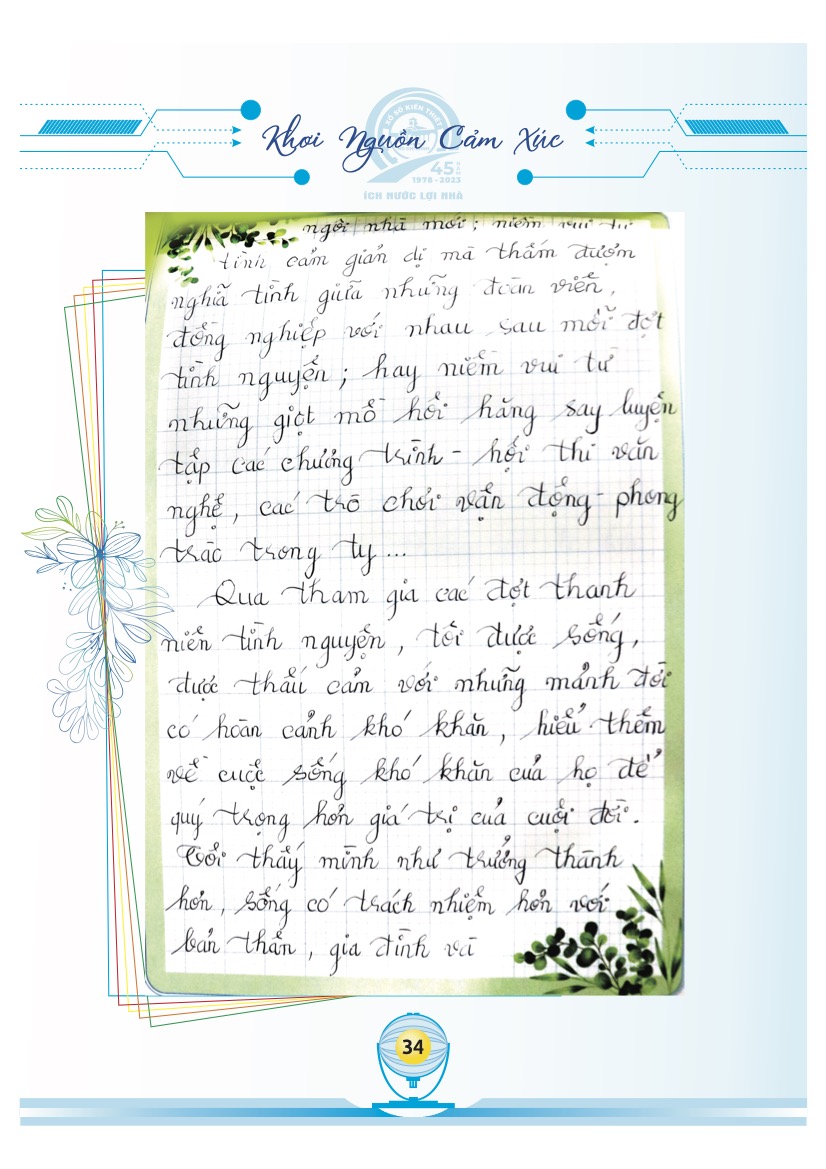 Khơi Nguồn Cảm Xúc
XỔ SỐ KIẾN THIẾT
45 NĂM
1978 - 2023
ÍCH NƯỚC LỢI NHÀ
ngôi nhà mới; niềm vui từ
tình cảm giản dị mà thấm đượm
nghĩa tình giữa những đoàn viên,
đồng nghiệp với nhau sau mỗi đợt
tình nguyện; hay niềm vui từ
những giọt mồ hôi hăng say luyện
tập các chương trình - hội thi văn
nghệ, các trò chơi vận động - phong
trào trong ty ...
Qua tham gia các đợt thanh
niên tình nguyện, tôi được sống,
được thấu cảm với những mảnh đời
có hoàn cảnh khó khăn, hiểu thêm
về cuộc sống khó khăn của họ để
quý trọng hơn giá trị của cuội đời.
Tôi thấy mình như trưởng thành
hơn, sống có trách nhiệm hơn với
bản thân, gia đình và
34